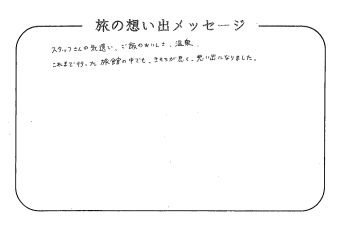 旅の想い出メッセージ
スタッフさんの気遣い、ご飯のおいしさ、温泉、
これまで行った旅館の中でも、きもちが良く、思い出になりました。